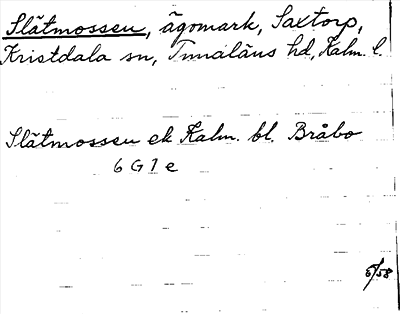 Slätmossen, ägomark, Saxtorp,
Kristdala sn, Tunaläns hd, Kalm. l.
Slätmossen ek Kalm. bl. Bråbo
6 G 1 e
5/58